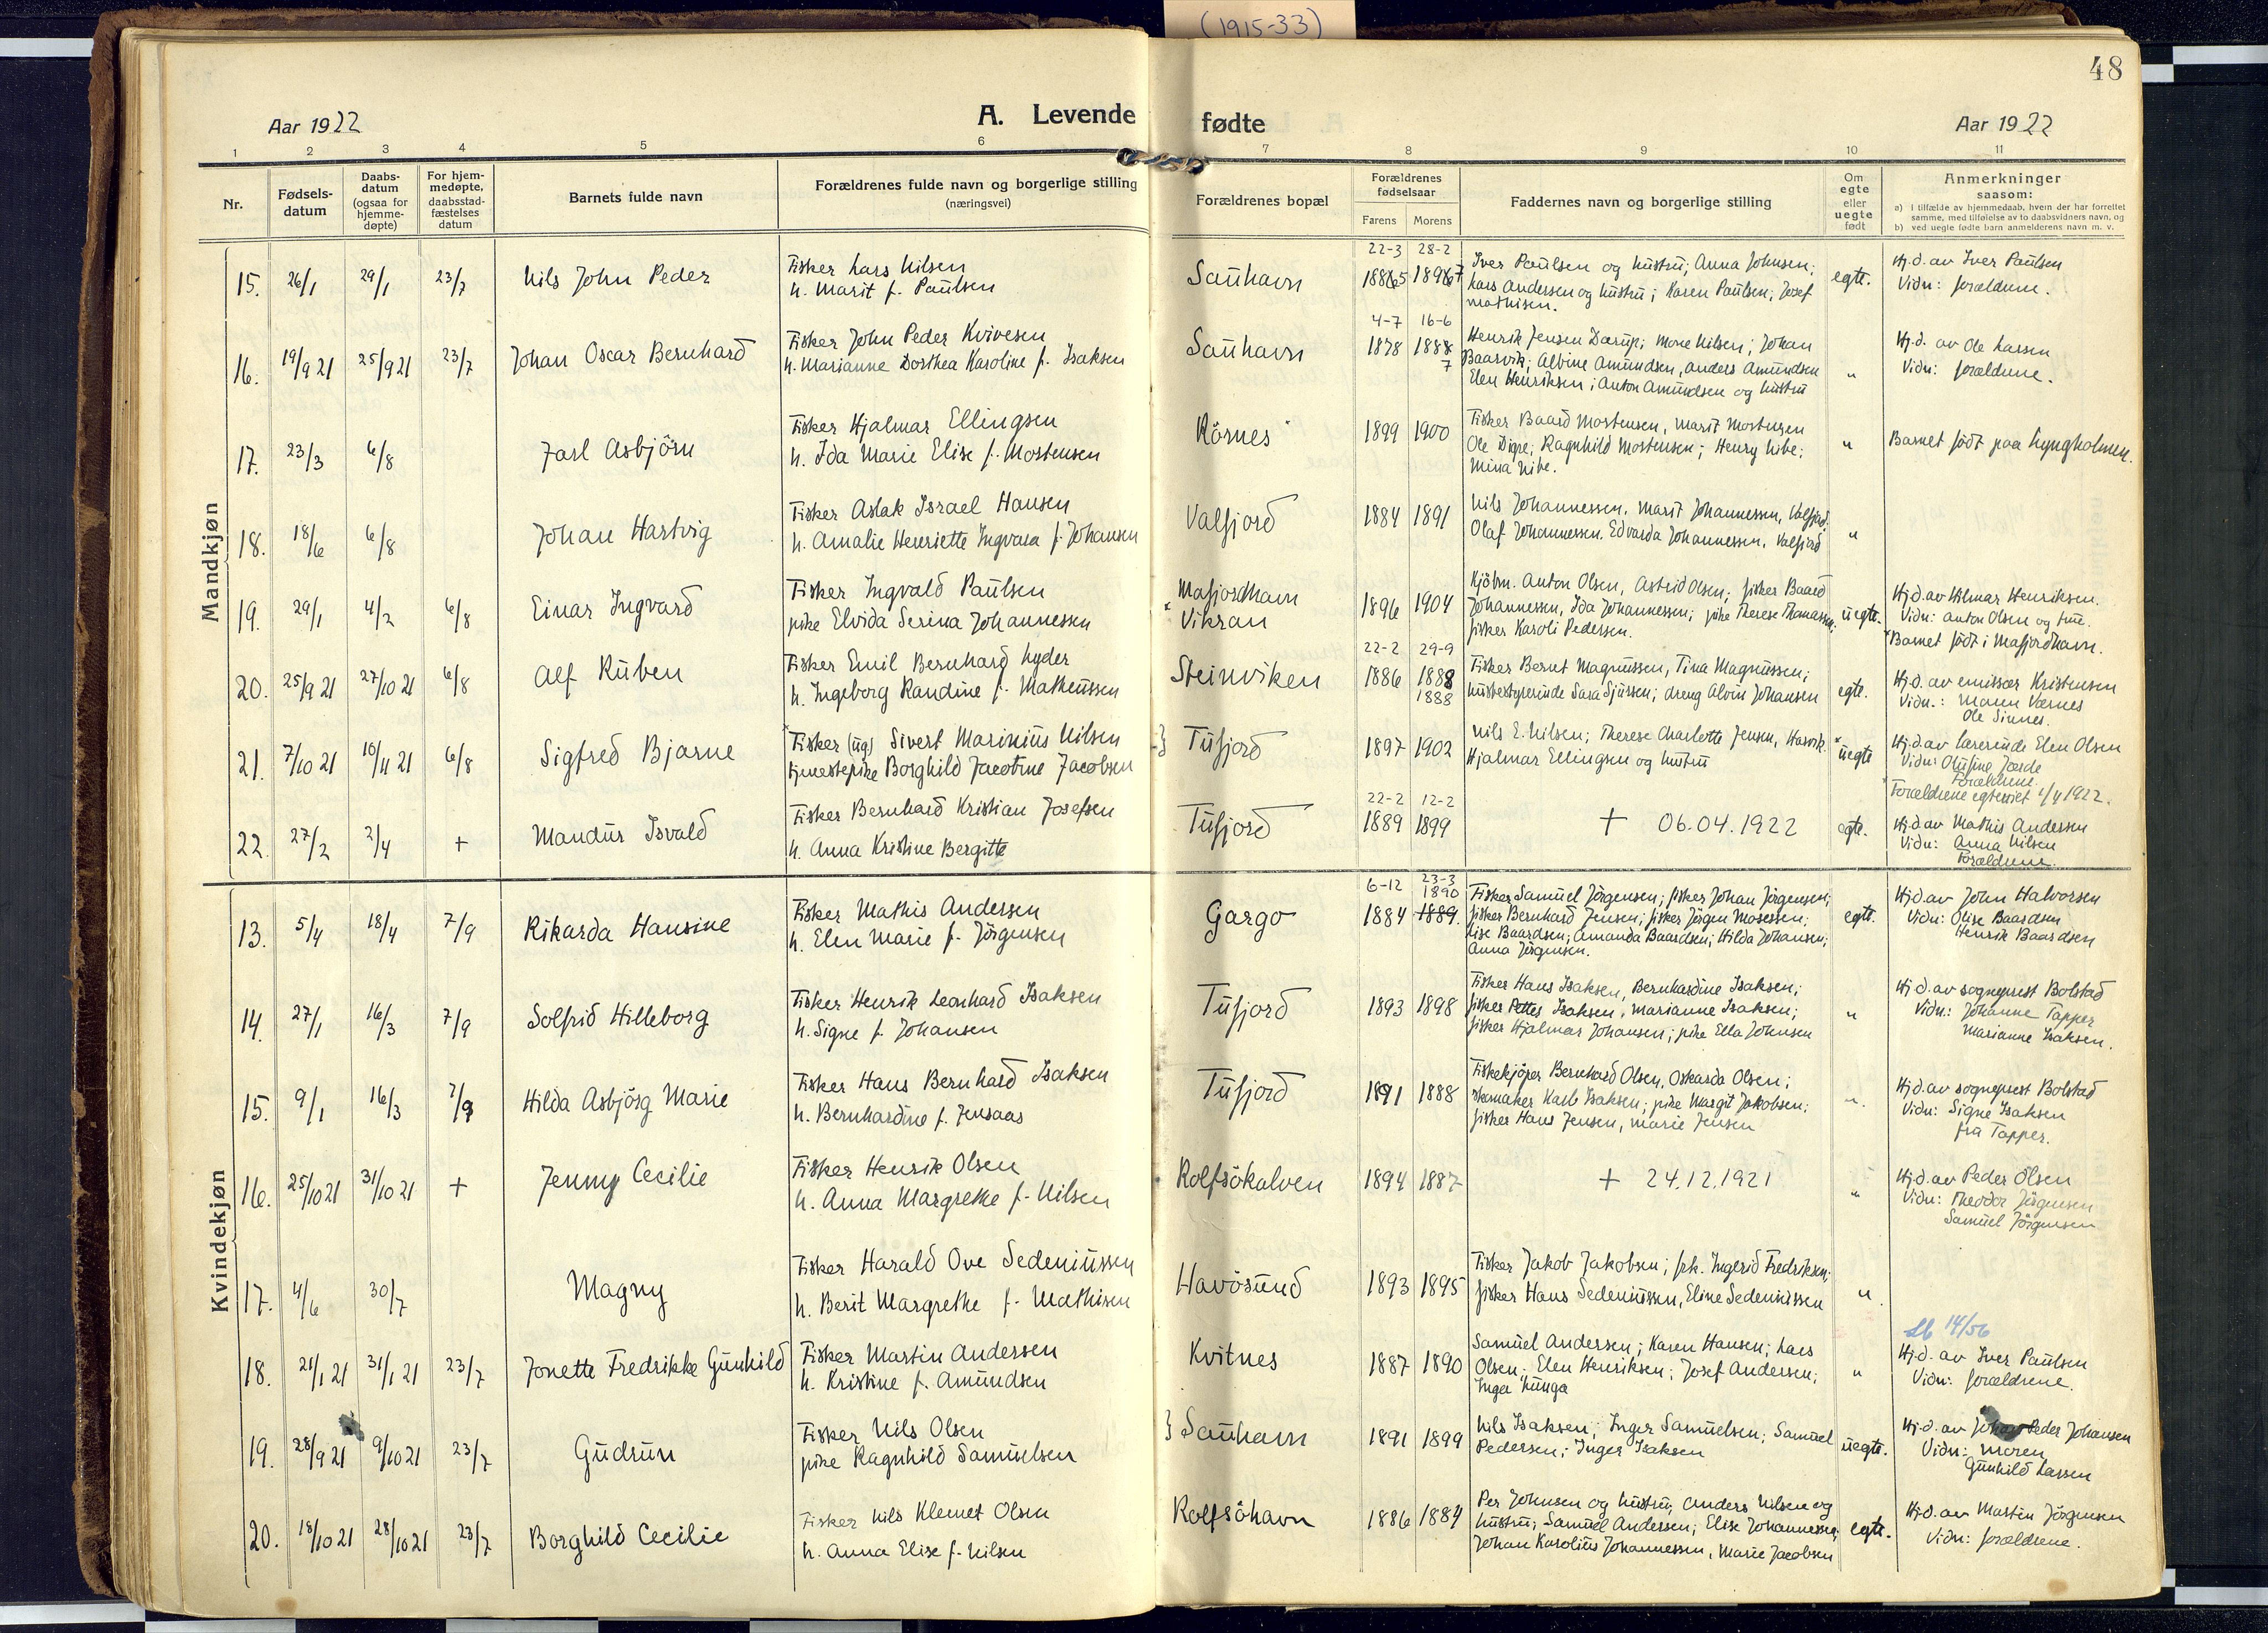 (1915-33)
48
Aar 1922
A. Levende fødte
Aar 1922
1 2 3 4 5 6 7 8 9 10 11
Nr.
Fødsels-
datum
Daabs-
datum
(ogsaa for
hjemme-
døpte)
For hjem-
medøpte,
daabsstad-
fæstelses
datum
Barnets fulde navn
Forældrenes fulde navn og borgerlige stilling
(næringsvei)
Forældrenes bopæl
Forældrenes
fødselsaar
Farens Morens
Faddernes navn og borgerlige stilling
Om
egte
eller
uegte
født
Anmerkninger
saasom:
a) i tilfælde av hjemmedaab, hvem der har forrettet
samme, med tilføielse av to daabsvidners navn, og
b) ved uegte fødte barn anmelderens navn m. v.
Mandkjøn
15. 26/1 29/1 23/7 Nils John Peder
Fisker Lars Nilsen
h. Marit f. Paulsen
Sauhavn
22-3 28-2
1885 1897
Iver Paulsen og hustru; Anna Johnsen;
Lars Andersen og hustru; Karen Paulsen; Josef
Mathisen.
egte.
Hj.d. av Iver Paulsen
Vidn: forældrene.
16. 19/9 21 25/9 21 23/7 Johan Oscar Bernhard
Fisker John Peder Kvivesen
h. Marianne Dorthea Karoline f. Isaksen
Sauhavn
4-7 16-6
1878 1888
7
Henrik Jensen Darup; Mone Nilsen; Johan
Baarvik; Albine Amundsen, Anders Amundsen
Elen Henriksen; Anton Amundsen og hustru
"
Hj.d. av Ole Larsen
Vidn: forældrene.
17. 23/3 6/8 Jarl Asbjörn
Fisker Hjalmar Ellingsen
h. Ida Marie Elise f. Mortensen
Körnes
1899 1900
Fisker Baard Mortensen, Marit Mortensen
Ole Digre; Ragnhild Mortensen; Henry Nibe;
Mina Nibe.
"
Barnet født paa Lyngholmen.
18. 18/6 6/8 Johan Hartvig
Fisker Aslak Israel Hansen
h. Amalie Henriette Ingvara f. Johansen
Valfjord
1884 1891
Nils Johannessen, Marit Johannessen, Valfjord.
Olaf Johannessen. Edvarda Johannessen, Valfjord
"
19. 29/1 4/2 6/8 Einar Ingvard
Fisker Ingvald Paulsen
pike Elvida Serina Johannessen
Mafjordhavn
* Vikran
1896 1904
Kjöbm. Anton Olsen, Astrid Olsen; fisker Baard
Johannessen, Ida Johannessen; pike Therese Thomassen;
fisker Karoli Pedersen.
uegte.
Hj.d. av Hilmar Henriksen.
Vidn: Anton Olsen og frue.
* Barnet født i Mafjordhavn.
20. 25/9 21 27/10 21 6/8 Alf Ruben
Fisker Emil Bernhard Lyder
h. Ingeborg Randine f. Matheussen
Steinviken
22-2 29-9
1886 1888
1888
Fisker Bernt Magnussen, Tina Magnussen;
husbestyrerinde Sara Sjursen; dreng Alvin Johansen
egte.
Hj.d. av emissær Kristensen
Vidn.: Mann Værnes
Ole Sinnes.
21. 7/10 21 10/11 21 6/8 Sigfred Bjarne
* Fisker (ug) Sivert Marinius Nilsen
tjenestepike Borghild Jacobine Jacobsen
} Tufjord
1897 1902
Nils E. Nilsen; Therese Charlotte Jensen, Hasvik.
Hjalmar Ellingsen og hustru
* uegte
Hj.d. av lærerinde Elen Olsen
Vidn: Olufine Jærde
Forældrene.
* Forældrene egteviet 1/4 1922.
22. 27/2 2/4 + Mandur Isvald
Fisker Bernhard Kristian Josefsen
h. Anna Kristine Bergitte
Tufjord
22-2 12-2
1889 1899
+ 06.04.1922
egte.
Hj.d. av Mathis Andersen
Vidn: Anna Nilsen
Forældrene.
Kvindekjøn
13. 5/4 18/4 7/9 Rikarda Hansine
Fisker Mathis Andersen
h. Elen Marie f. Jörgensen
Gargo
6-12 23-3
1890
1884 1889.
Fisker Samuel Jörgensen; fisker Johan Jörgensen;
fisker Bernhard Jensen; fisker Jörgen Mosessen;
Lise Baardsen; Amanda Baardsen; Hilda Johansen;
Anna Jörgensen.
egte.
Hj.d av John Halvorsen
Vidn: Olise Baardsen
Henrik Baardsen
14. 27/1 16/3 7/9 Solfrid Hilleborg
Fisker Henrik Leonhard Isaksen
h. Signe f. Johansen
Tufjord
1893 1898
Fisker Hans Isaksen, Bernhardine Isaksen;
fisker Petter Isaksen, Marianne Isaksen;
fisker Hjalmar Johansen; pike Ella Johnsen
"
Hj.d. av sogneprest Bolstad
Vidn.: Johanne Tapper
Marianne Isaksen.
15. 9/1 16/3 7/9 Hilda Asbjörg Marie
Fisker Hans Bernhard Isaksen
h. Bernhardine f. Jensaas
Tufjord
1891 1888
Fiskekjöper Bernhard Olsen, Oskarda Olsen;
skomaker Karl Isaksen; pike Margit Jakobsen;
fisker Hans Jensen, Marie Jensen
"
Hj.d. av sogneprest Bolstad
Vidn: Signe Isaksen
fru Tapper.
16. 25/10 21 31/10 21 + Jenny Cecilie
Fisker Henrik Olsen
h. Anna Margrethe f. Nilsen
Rolfsökalven
1894 1887
+ 24.12.1921
"
Hj.d. av Peder Olsen
Vidn: Theodor Jörgensen
Samuel Jörgensen
17. 4/6 30/7 Magny
Fisker Harald Ove Sedeniussen
h. Berit Margrethe f. Mathisen
Havösund
1893 1895
Fisker Jakob Jakobsen; frk. Ingerid Fredriksen;
fisker Hans Sedeniussen, Eline Sedeniussen
"
18. 21/1 21 31/1 21 23/7 Jonette Fredrikke Gunhild
Fisker Martin Andersen
h. Kristine f. Amundsen
Kvitnes
1887 1890
Samuel Andersen; Karen Hansen; Lars
Olsen; Elen Henriksen; Josef Andersen;
Inga Lunga
"
14/56
Hj.d. av Iver Paulsen
Vidn: forældrene.
19. 28/9 21 9/10 21 23/7 Gudrun
Fisker Nils Olsen
pike Ragnhild Samuelsen
} Sauhavn
1891 1899
Nils Isaksen; Inger Samuelsen; Samuel
Pedersen; Inger Isaksen
uegte.
Hj.d. av Johan Peder Johansen
Vidn: moren
Gunhild Larsen
20. 18/10 21 28/10 21 23/7 Borghild Cecilie
Fisker Nils Klemet Olsen
h. Anna Elise f. Nilsen
Rolfsöhavn
1886 1884
Per Johnsen og hustru; Anders Nilsen og
hustru; Samuel Andersen; Elise Johannessen;
Johan Karolius Johannessen, Marie Jacobsen
egte.
Hj.d. av Martin Jörgensen
Vidn: forældrene.